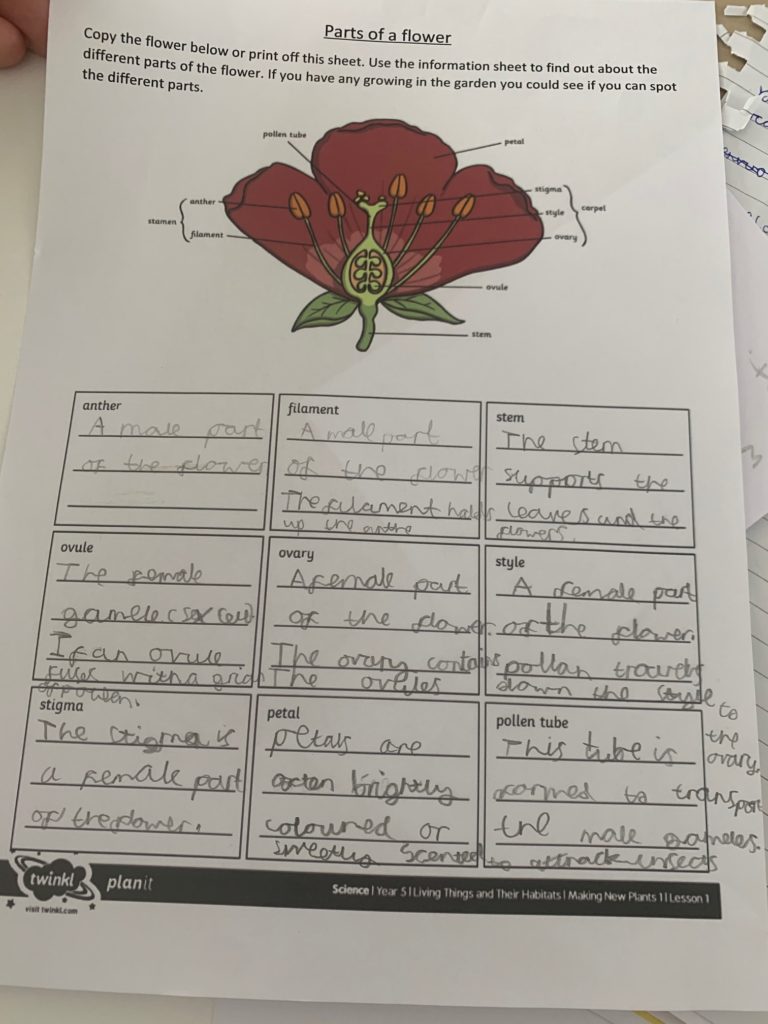 Parts of a flower
Copy the flower below or print off this sheet. Use the information sheet to find out about the
different parts of the flower. If you have any growing in the garden you could see if you can spot
the different parts.
pollen tube
petal
anther
stamen
filament
stigma
style
carpel
ovary
ovule
stem
anther
A male part
of the flower
filament
A male part
of the flower
The filament holds
up the
stem
The stem
supports the
leaves and the
flowers.
ovule
The female
gamele (sex cell)
If an ovule
fuses with a
of pollen.
ovary
A female part
of the flower.
The ovary contains
The ovules
style
A female part
of the flower.
pollan travels
down the style to
the
ovary.
stigma
The stigma is
a female part
of the flower.
petal
petals are
often brightly
coloured or
scented to attrack insects
pollen tube
This tube is
formed to transport
the male gametes.
twinkl
planit
visit twinkl.com
Science | Year 5 | Living Things and Their Habitats | Making New Plants 1 | Lesson 1